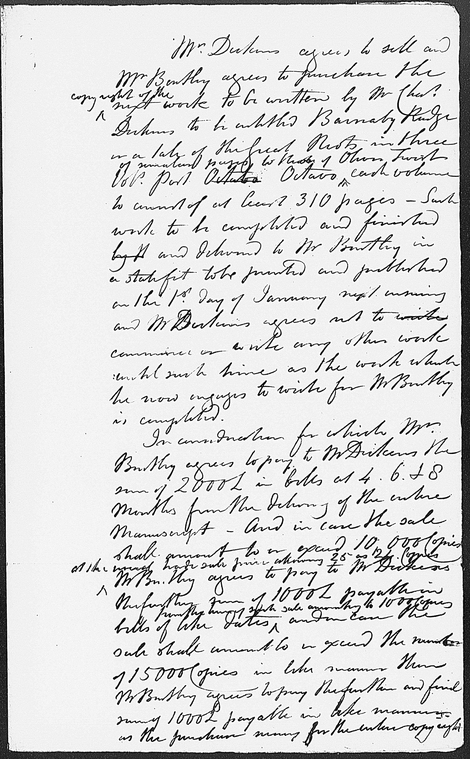 Mr. Dickens agrees to sell and
Mr Bentley agrees to purchase the
copyright of the
next work to be written by Mr Chas.
Dickens to be entitled Barnaby Rudge
or a tale of the Great Riots, in three
of similar to that of Oliver Twist
Vols. Post Octavo Octavo, each volume
to consist of at least 310 pages – Such
work to be completed and finished
by and delivered to Mr Bentley in
a state fit to be printed and published
on the 1st day of January next ensuing
and Mr Dickens agrees not to write
commence or write any other work
until such time as the work which
he now engages to write for Mr Bentley
is completed.
In consideration for which Mr.
Bentley agrees to pay to Mr Dickens the
sum of 2000£ in bills at 4. 6. & 8
Months from the delivery of the entire
Manuscript – And in case the sale
shall amount to or exceed 10,000 Copies
at the usual trade sale price 25 as 24 Copies
Mr Bentley agrees to pay to Mr Dickens
the further sum of 1000£ payable in
such sale amounting to 10000 Copies
bills of like dates, and in case the
sale shall amount to or exceed the number
of 15000 Copies in like manner then
Mr Bentley agrees to pay the further and final
sum of 1000£ payable in like manner
as the purchase money for the entire copyright